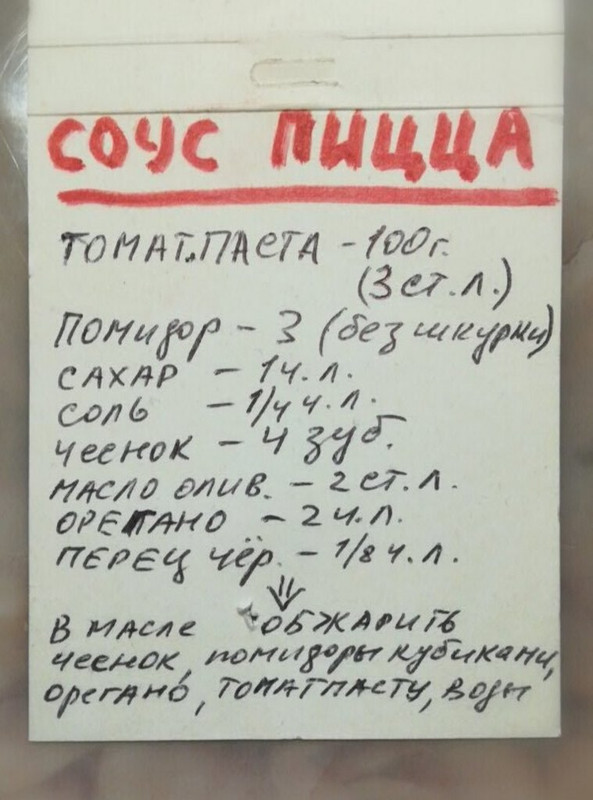 СОУС ПИЦЦА
ТОМАТ.ПАСТА - 100г.
(3 СТ.Л.)
ПОМИДОР - 3 (без шкурки)
САХАР - 1 ч.Л.
СОЛЬ - 1/4 ч.Л.
ЧЕСНОК - 4 зуб.
МАСЛО ОЛИВ. - 2 СТ.Л.
ОРЕГАНО - 2 ч.Л.
ПЕРЕЦ ЧЁР. - 1/8 ч.Л.
В МАСЛЕ ОБЖАРИТЬ
чеснок, помидоры кубиками,
орегано, ТОМАТПАСТУ, воды